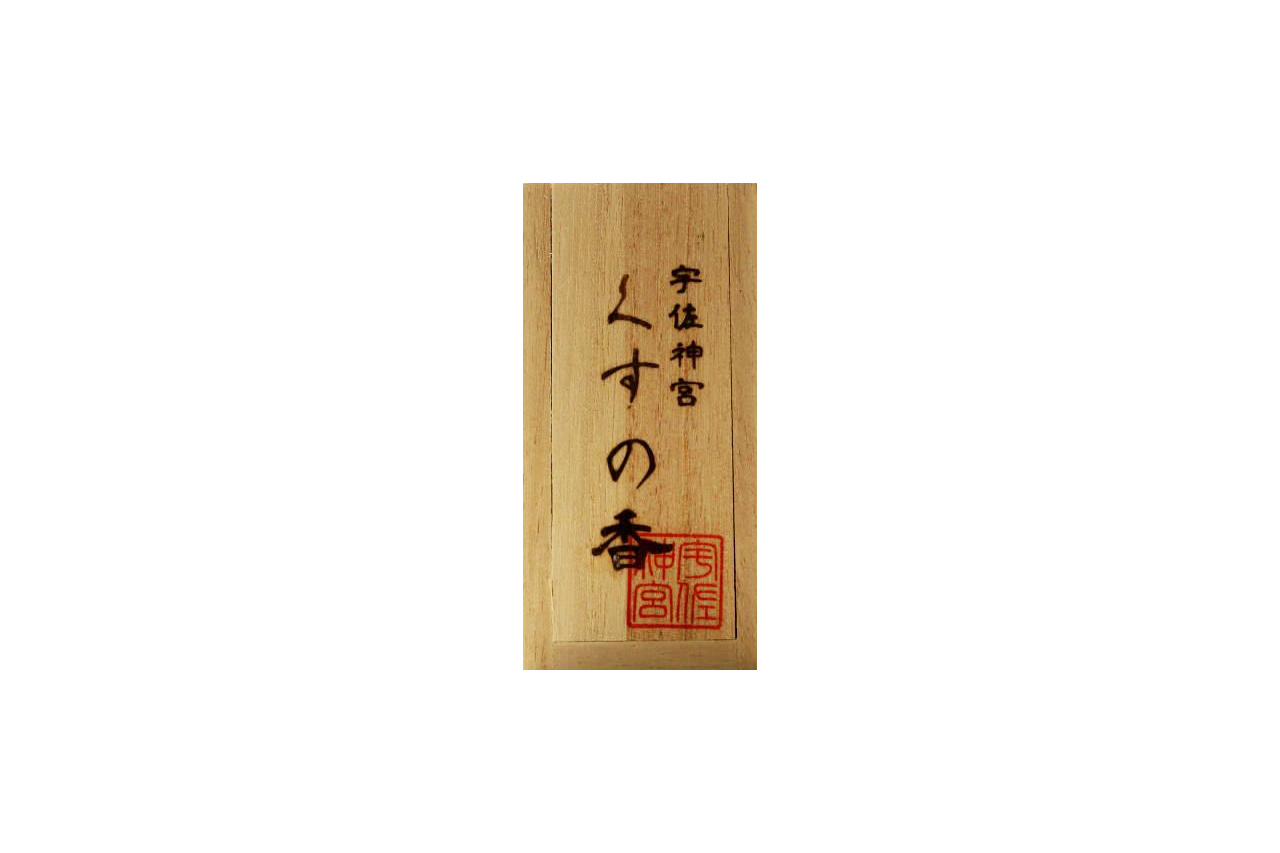 宇佐神宮
くすの香
宇佐
神宮